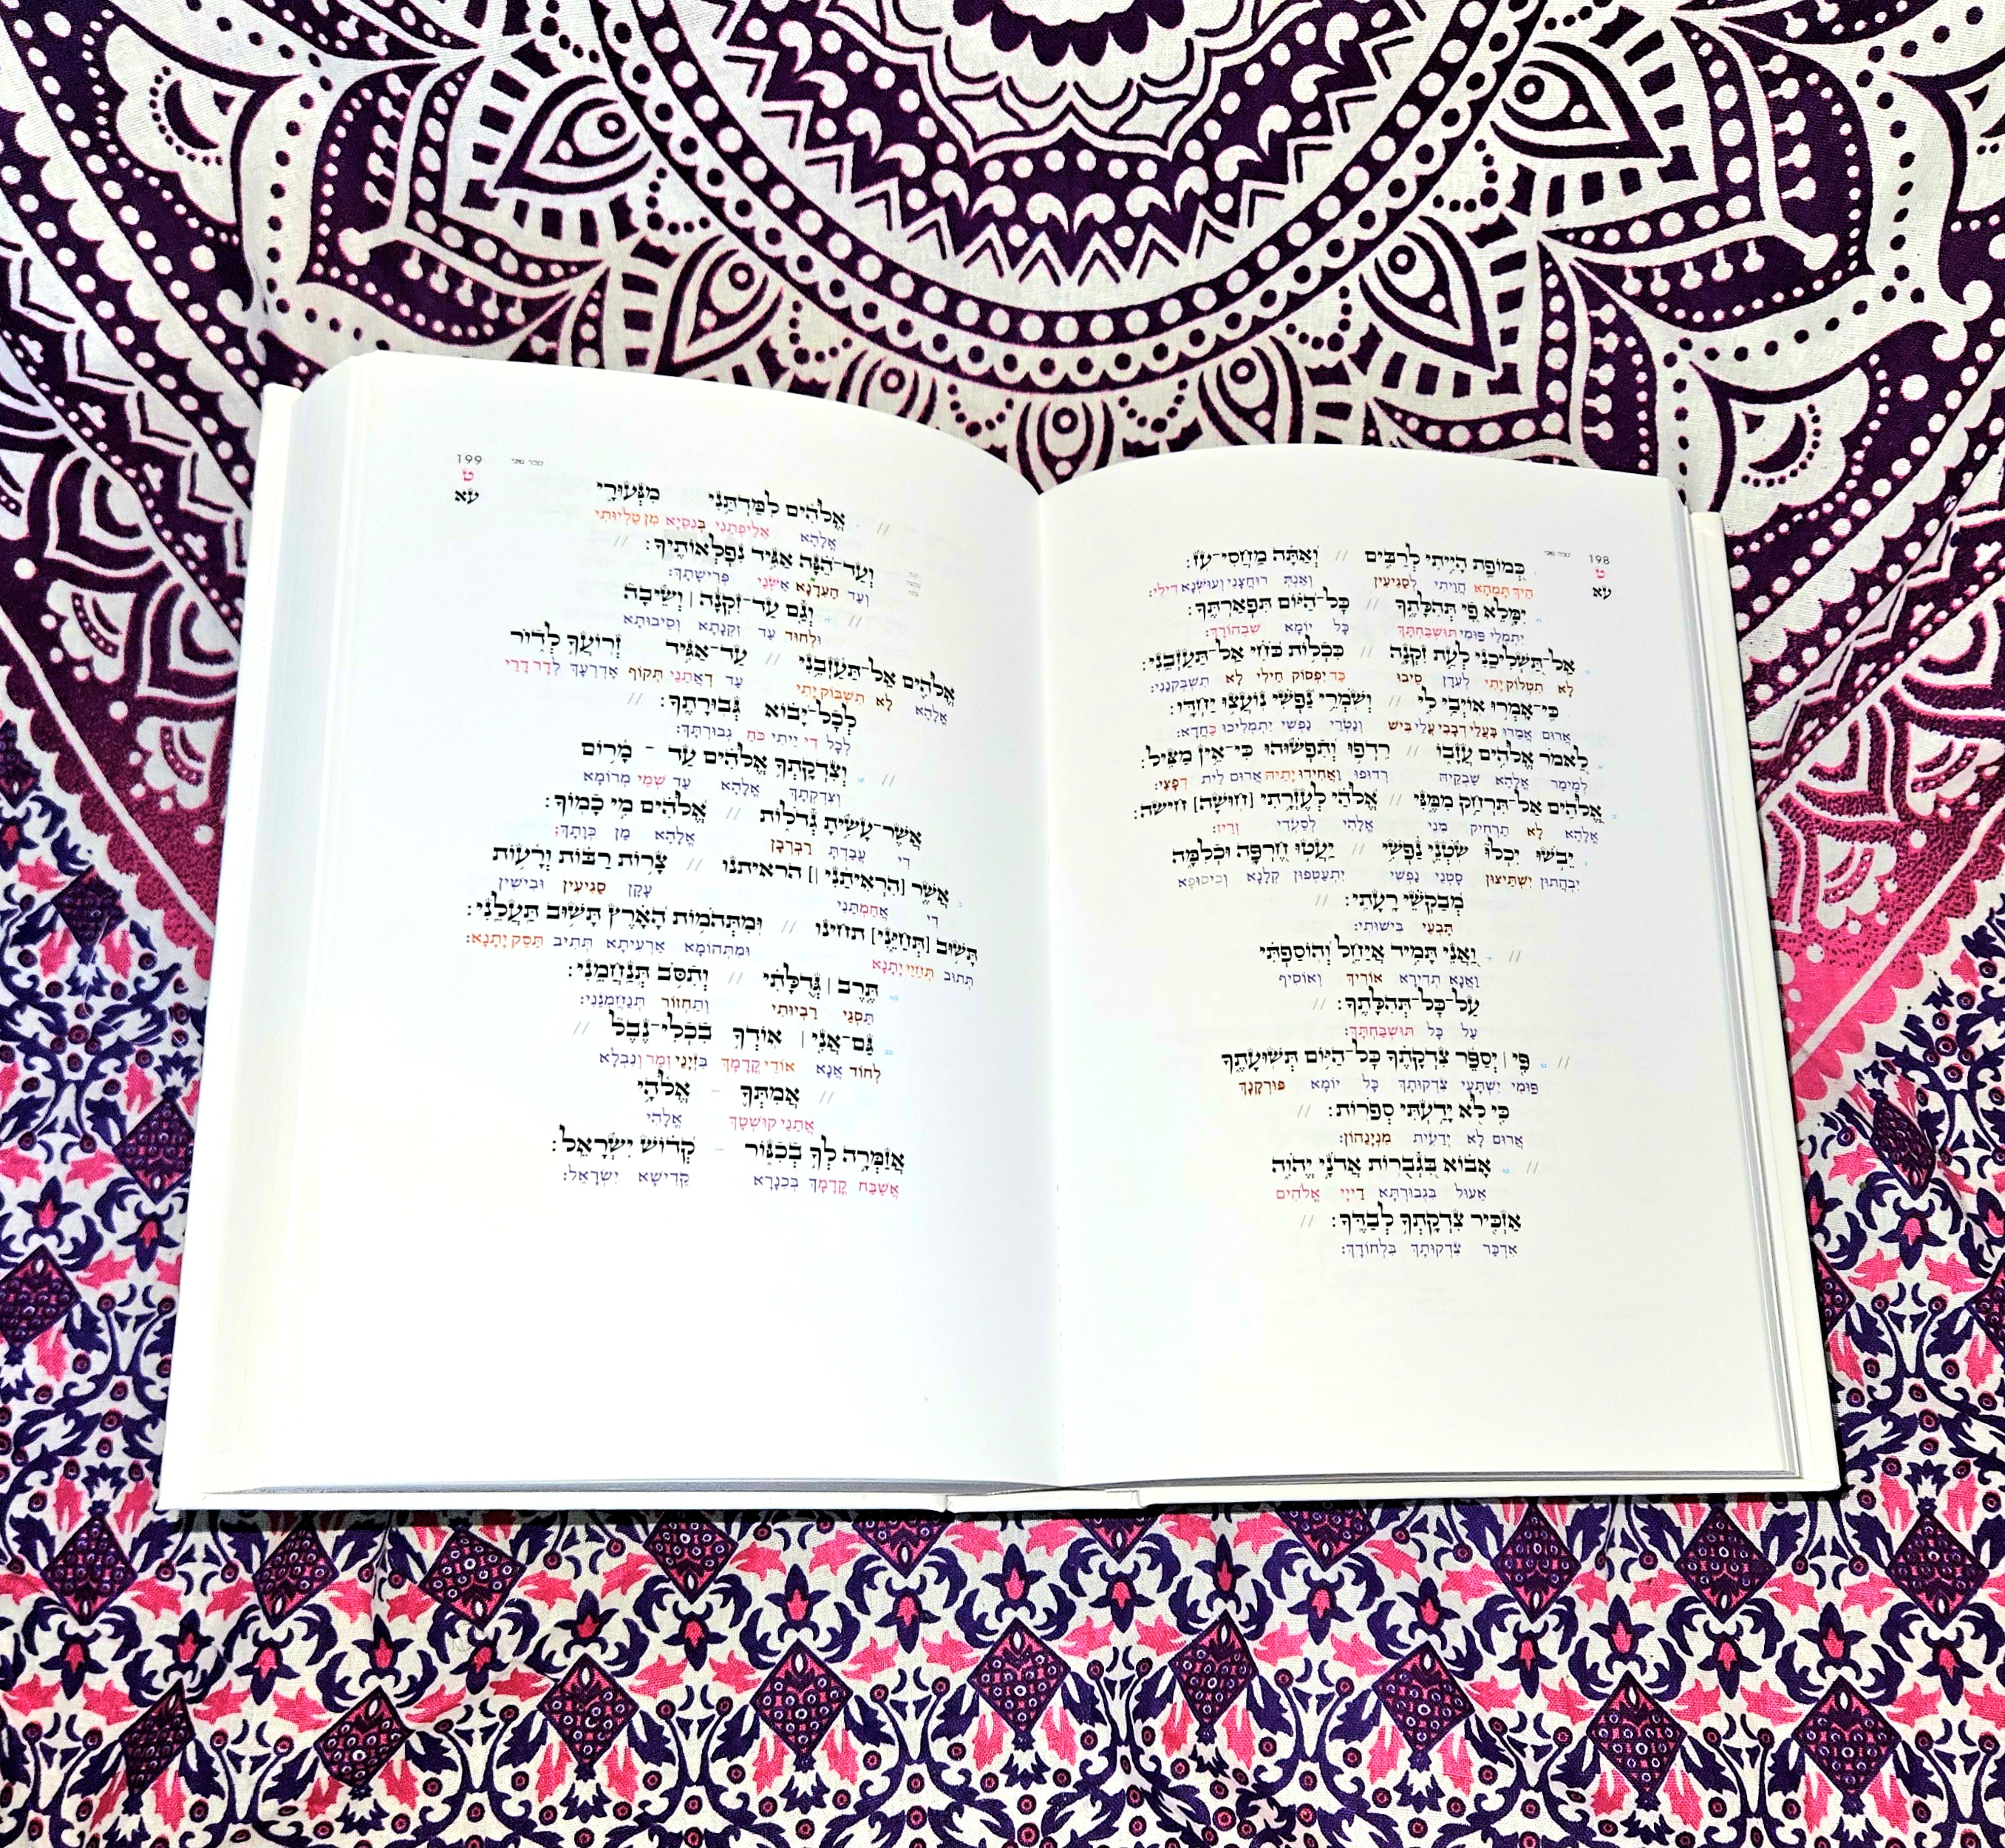 198
ט
עא
כְּמוֹפֵת הָיִיתִי לְרַבִּים // וְאַתָּה מַחֲסִי־עֹז׃
הֵיךְ תִּמְהָא הֲוֵיתִי לְסַגִיעִין וְאַנְתְּ רוּחֲצָנִי וְעוּשְׁנָא דִילִי׃
יִמָּלֵא פִי תְּהִלָּתֶךָ // כָּל־הַיּוֹם תִּפְאַרְתֶּךָ׃
יִתְמְלֵי פּוּמִי תּוּשְׁבַּחְתָּךְ כָּל יוֹמָא שִׁבְהוֹרָךְ׃
אַל־תַּשְׁלִיכֵנִי לְעֵת זִקְנָה // כִּכְלוֹת כֹּחִי אַל־תַּעַזְבֵנִי׃
לָא תִטְלוֹק יָתִי לְעִדַן סֵיבוּ כַּד יִפְסוֹק חֵילִי לָא תִשְׁבְּקִנַנִי׃
כִּי־אָמְרוּ אוֹיְבַי לִי // וְשֹׁמְרֵי נַפְשִׁי נוֹעֲצוּ יַחְדָּו׃
אֲרוּם אֲמַרוּ בַּעֲלֵי דְבָבִי עֲלַי בִּישׁ וְנַטְרֵי נַפְשִׁי יִתְמְלִיכוּ כַּחֲדָא׃
לֵאמֹר אֱלֹהִים עֲזָבוֹ // רִדְפוּ וְתִפְשׂוּהוּ כִּי־אֵין מַצִּיל׃
לְמֵימַר אֱלָהָא שַׁבְקֵיהּ רְדוּפוּ וַאֲחִידוּ יָתֵיהּ אֲרוּם לֵית דְפָצֵי׃
אֱלֹהִים אַל־תִּרְחַק מִמֶּנִּי // אֱלֹהַי לְעֶזְרָתִי [חוּשָׁה] חישה׃
אֱלָהָא לָא תַרְחִיק מִנִי אֱלָהִי לְסַעֲדִי זְרֵיז׃
יֵבֹשׁוּ יִכְלוּ שֹׂטְנֵי נַפְשִׁי // יַעֲטוּ חֶרְפָּה וּכְלִמָּה
יִבְהֲתוּן יִשְׁתֵּיצוּן סָטְנֵי נַפְשִׁי יִתְעַטְפוּן קְלָנָא וְכִיסוּפָא
מְבַקְשֵׁי רָעָתִי׃ //
תָּבְעֵי בִּישׁוּתִי׃
// וַאֲנִי תָּמִיד אֲיַחֵל וְהוֹסַפְתִּי
וַאֲנָא תְדִירָא אוֹרִיךְ וְאוֹסִיף
עַל־כָּל־תְּהִלָּתֶךָ׃ //
עַל כָּל תּוּשְׁבַּחְתָּךְ׃
// פִּי | יְסַפֵּר צִדְקָתֶךָ כָּל־הַיּוֹם תְּשׁוּעָתֶךָ
פּוּמִי יִשְׁתָּעֵי צִדְקוּתָךְ כָּל יוֹמָא פּוּרְקָנָךְ
כִּי לֹא יָדַעְתִּי סְפֹרוֹת׃ //
אֲרוּם לָא יְדָעִית מִנְיָנְהוֹן׃
// אָבוֹא בִּגְבֻרוֹת אֲדֹנָי יֱהֹוִה
אֵעוּל בִּגְבוּרְתָּא דַייָי אֱלֹהִים
אַזְכִּיר צִדְקָתְךָ לְבַדֶּךָ׃ //
אִדְכַּר צִדְקוּתָךְ בִּלְחוֹדָךְ׃
199
ט
עא
// אֱלֹהִים לִמַּדְתַּנִי מִנְּעוּרָי
אֱלָהָא אַלֵיפְתַּנִי בְּנִסַיָא מִן טַלְיוּתִי
וְעַד־הֵנָּה אַגִּיד נִפְלְאוֹתֶיךָ׃ //
וְעַד הַעִדָנָא אֲשַׁנֵי פְּרִישָׁתָךְ׃
// וְגַם עַד־זִקְנָה | וְשֵׂיבָה
וּלְחוּד עַד זִקְנָתָא וְסֵיבוּתָא
אֱלֹהִים אַל־תַּעַזְבֵנִי // עַד־אַגִּיד זְרוֹעֲךָ לְדוֹר
אֱלָהָא לָא תִשְׁבּוֹק יָתִי עַד דַאֲתַנֵי תְּקוֹף אֶדְרָעָךְ לְדַר דָרֵי
לְכָל־יָבוֹא גְּבוּרָתֶךָ׃ //
לְכָל דִי יֵיתֵי כֹּחַ גְבוּרְתָּךְ׃
// וְצִדְקָתְךָ אֱלֹהִים עַד – מָרוֹם
וְצִדְקָתָךְ אֱלָהָא עַד שְׁמֵי מְרוֹמָא
אֲשֶׁר־עָשִׂיתָ גְדֹלוֹת // אֱלֹהִים מִי כָמוֹךָ׃
דִי עֲבַדְתָּ רַבְרְבָן אֱלָהָא מַן כְּוָתָךְ׃
אֲשֶׁר [הִרְאִיתַנִי |] הראיתנו // צָרוֹת רַבּוֹת וְרָעוֹת
דִי אַחֲמִתַּנִי עָקַן סַגִיעִין וּבִישִׁין
תָּשׁוּב [תְּחַיֵּינִי] תחינו // וּמִתְּהֹמוֹת הָאָרֶץ תָּשׁוּב תַּעֲלֵנִי׃
תְּתוּב תְּחַיֵי יָתָנָא וּמִתְּהוֹמָא אַרְעִיתָא תְּתִיב תַּסֵק יָתָנָא׃
תֶּרֶב | גְּדֻלָּתִי // וְתִסֹּב תְּנַחֲמֵנִי׃
תַּסְגֵי רַבְיוּתִי וְתַחְזוֹר תְּנַחֲמִנַנִי׃
גַּם־אֲנִי | אוֹדְךָ בִכְלִי־נֶבֶל //
לְחוֹד אֲנָא אוֹדֵי קֳדָמָךְ בְּזְיָנֵי זְמַר וְנִבְלָא
// אֲמִתְּךָ – אֱלֹהָי
אֲתַנֵי קוּשְׁטָךְ אֱלָהִי
אֲזַמְּרָה לְךָ בְכִנּוֹר – קְדוֹשׁ יִשְׂרָאֵל׃
אֲשַׁבַּח קֳדָמָךְ בְּכִנָרָא קַדִישָׁא יִשְׂרָאֵל׃